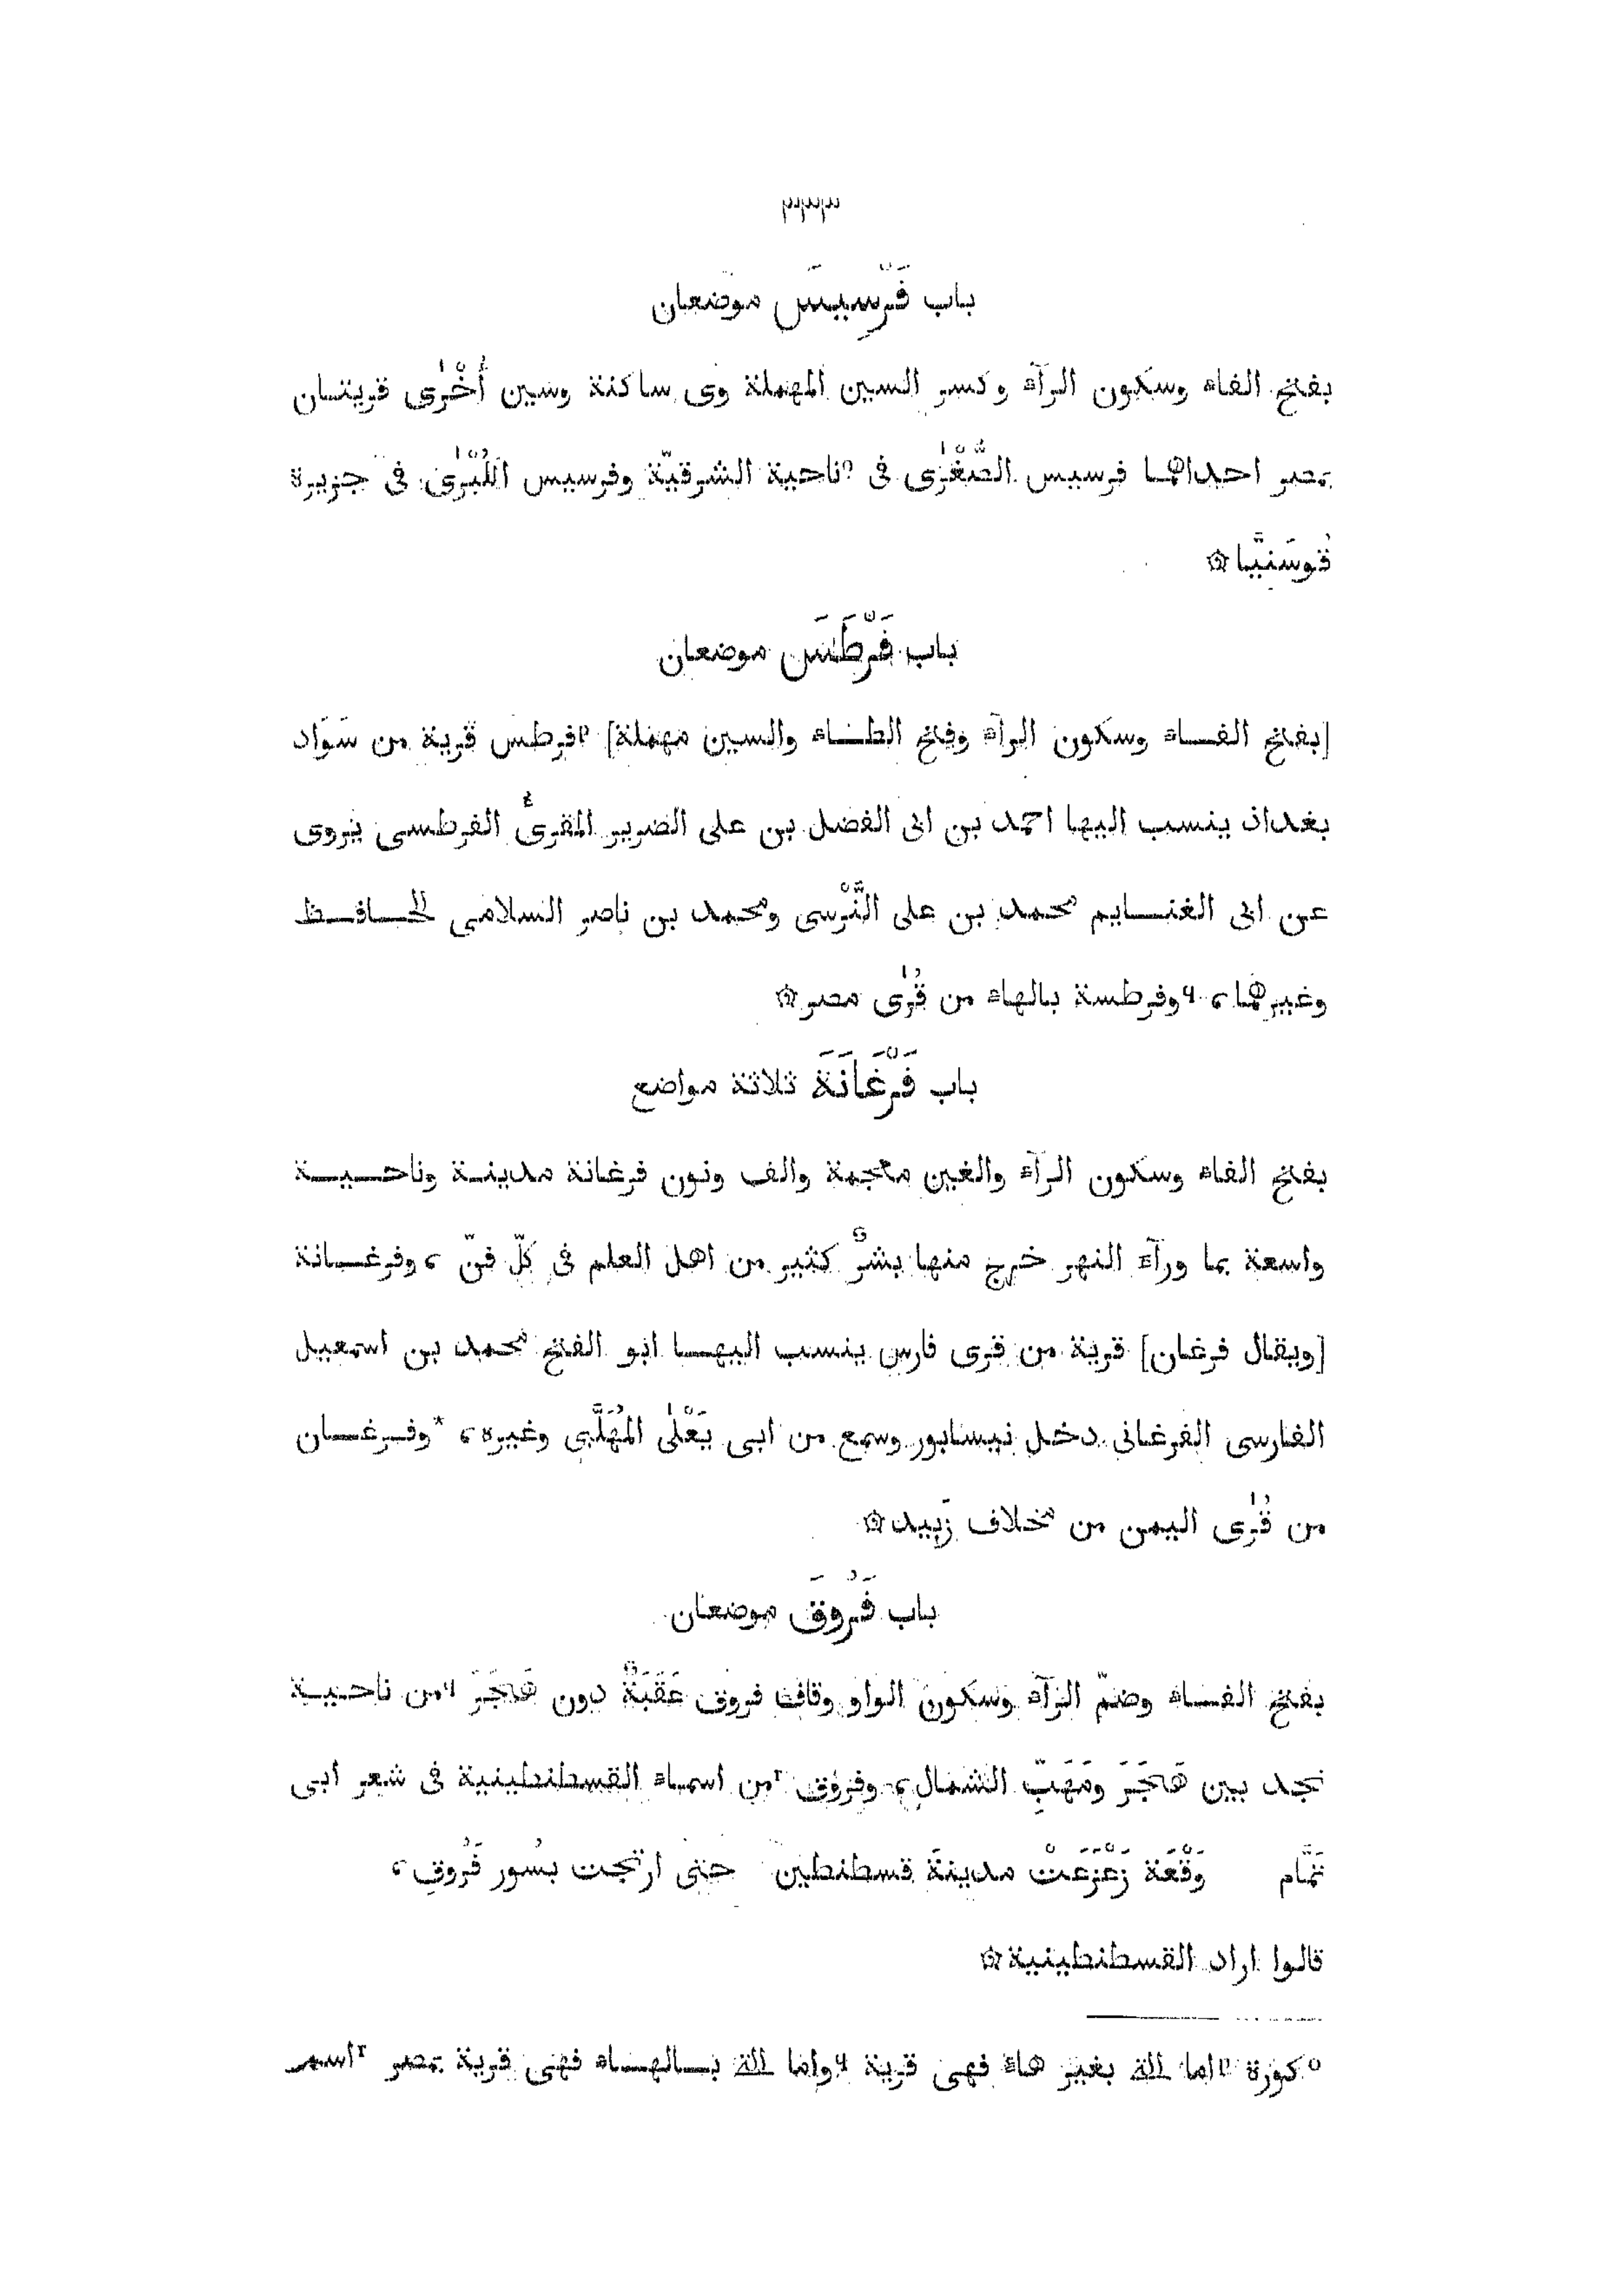 ٣٣٣
باب فَرْسِيسَ موضعان
بفتح الفاء وسكون الرآء وكسر السين المهملة وى ساكنة وسين أُخْرٰى قريتان
بمصر احداهما فرسيس الصُّغْرٰى فى ٥ناحية الشرقيّة وفرسيس الكُبْرٰى فى جزيرة
قُوسَنِيَّا ۞
باب فَرْطَسَ موضعان
[بفتح الفاء وسكون الرآء وفتح الطاء والسين مهملة] ٩فرطس قرية من سَوَاد
بغداد ينسب اليها احمد بن ابى الفضل بن على الضرير المقرئ الفرطسى يروى
عن ابى الغنايم محمد بن على النَّرْسى ومحمد بن ناصر السلامى الحافظ
وغيرهما، ٩وفرطسة بالهاء من قُرٰى مصر ۞
باب فَرْغَانَةَ ثلاثة مواضع
بفتح الفاء وسكون الرآء والغين معجمة والف ونون فرغانة مدينة وناحية
واسعة بما ورآء النهر خرج منها بشرٌ كثير من اهل العلم فى كلّ فنّ، وفرغانة
[ويقال فرغان] قرية من قرى فارس ينسب اليها ابو الفتح محمد بن اسمعيل
الفارسى الفرغانى دخل نيسابور وسمع من ابى يَعْلٰى المُهَلَّبى وغيره، *وفرغان
من قُرٰى اليمن من مخلاف زَبِيد ۞
باب فَرُوقَ موضعان
بفتح الفاء وضمّ الرآء وسكون الواو وقاف فروق عَقَبَةٌ دون هَجَرَ ٩من ناحية
نجد بين هَجَرَ ومَهَبِّ الشمال، وفروق ٢من اسماء القسطنطينية فى شعر ابى
تمَّام وَقْعَة زَعْزَعَتْ مدينةَ قسطنطين حتى ارتجت بسُور فَرُوقِ،
قالوا اراد القسطنطينية ۞
٥ كورة ٩اما الة بغير هاء فهى قرية ٩واما الة بالهاء فهى قرية بمصر ٢اسم